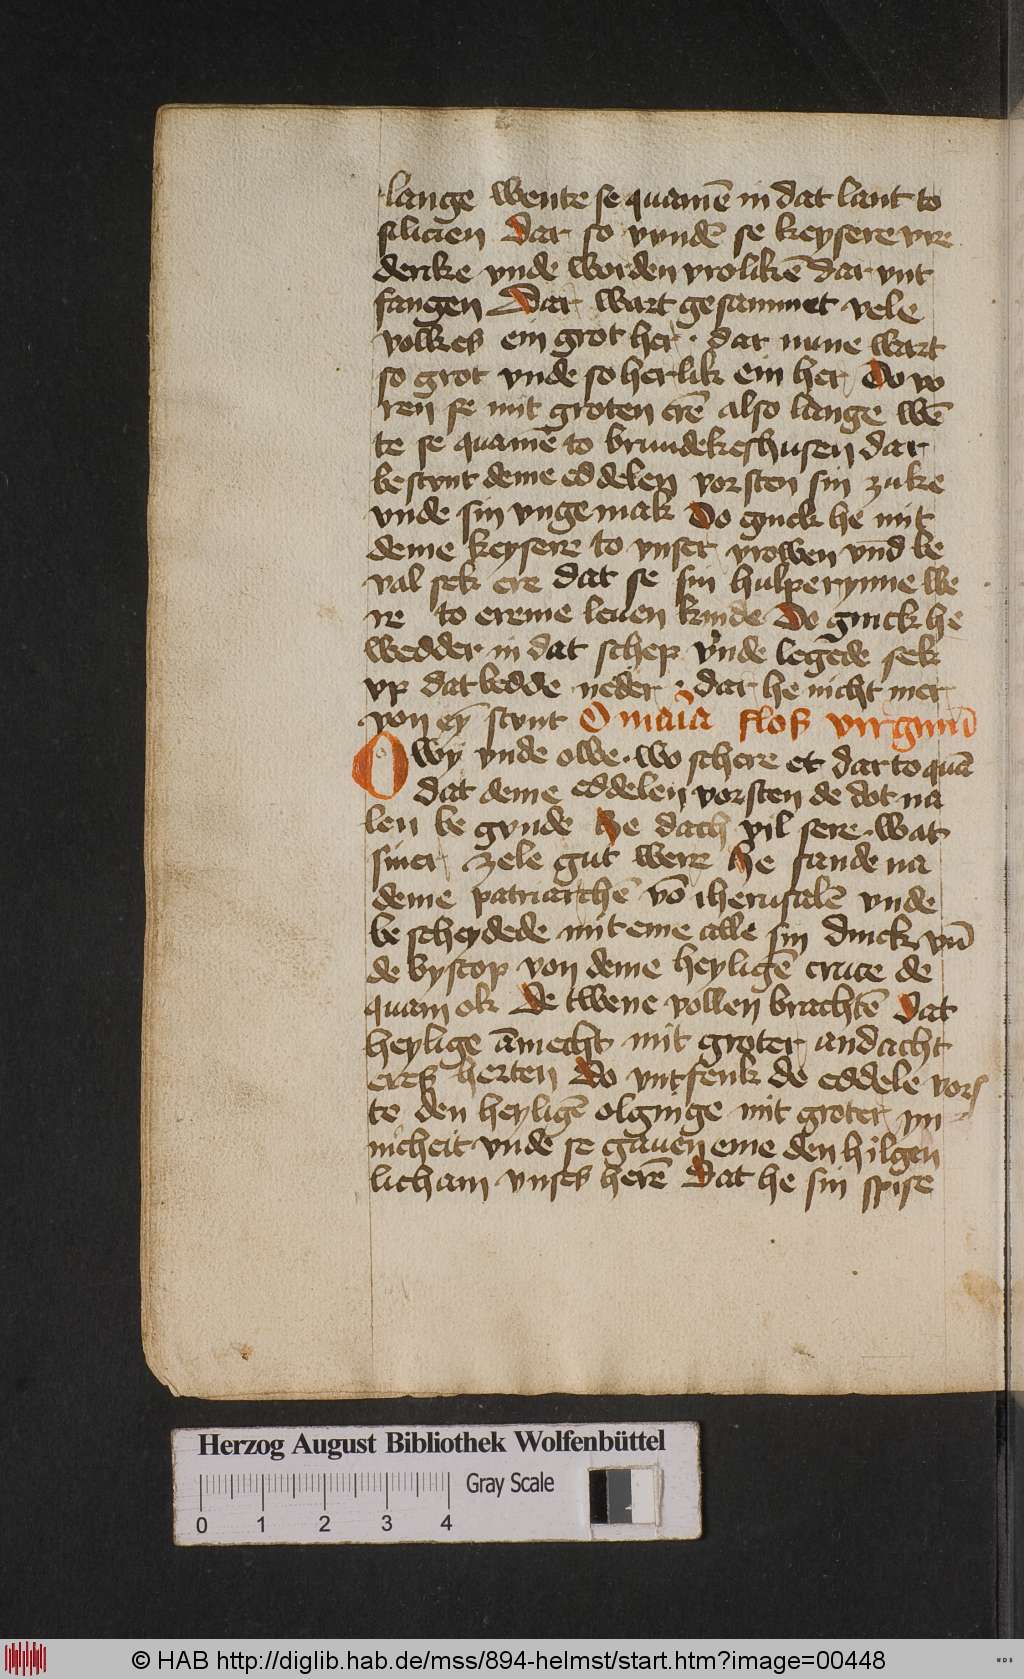 lange wente se quamē in dat lant to
silicien Dar so vundē se keysere vre
derike vnde worden vrolikē dar vnt
fangen Dar wart gesammet vele
volkes ein grot her · dar nune wart
so grot vnde so herlik ein her Do vo
ren se mit groten erē also lange wē
te se quamē to brundekeshusen dar
bestvnt deme eddelen vorsten sin zuke
vnde sin vngemak Do ginck he mit
deme keysere to vnser vrowen vnd be
val sek ere dat se sin hulperynne we
re to ereme leuen kinde Do ginck he
wedder in dat schep vnde legede sek
vp dat bedde neder · dar he nicht mer
von eȳ stvnt O maria flos virginū
Owy vnde owe · wo schere et dar to quā
dat deme eddelen vorsten de dot na
len be gvnde He dach vil sere · wat
siner zele gut were He sande na
deme patriarchē vō iherusalē vnde
be scheydede mit eme alle sin dinck vn̄
de byscop von deme heyligē cruce de
quam ok De twene vollen brachtē dat
heylige āmecht mit groter andacht
eres herten Do vntfenk de eddele vors
te den heyligē olginge mit groter yn
nicheit vnde se gauen eme den hilgen
licham vnses herē Dat he sin spise
Herzog August Bibliothek Wolfenbüttel
Gray Scale
0 1 2 3 4
© HAB http://diglib.hab.de/mss/894-helmst/start.htm?image=00448